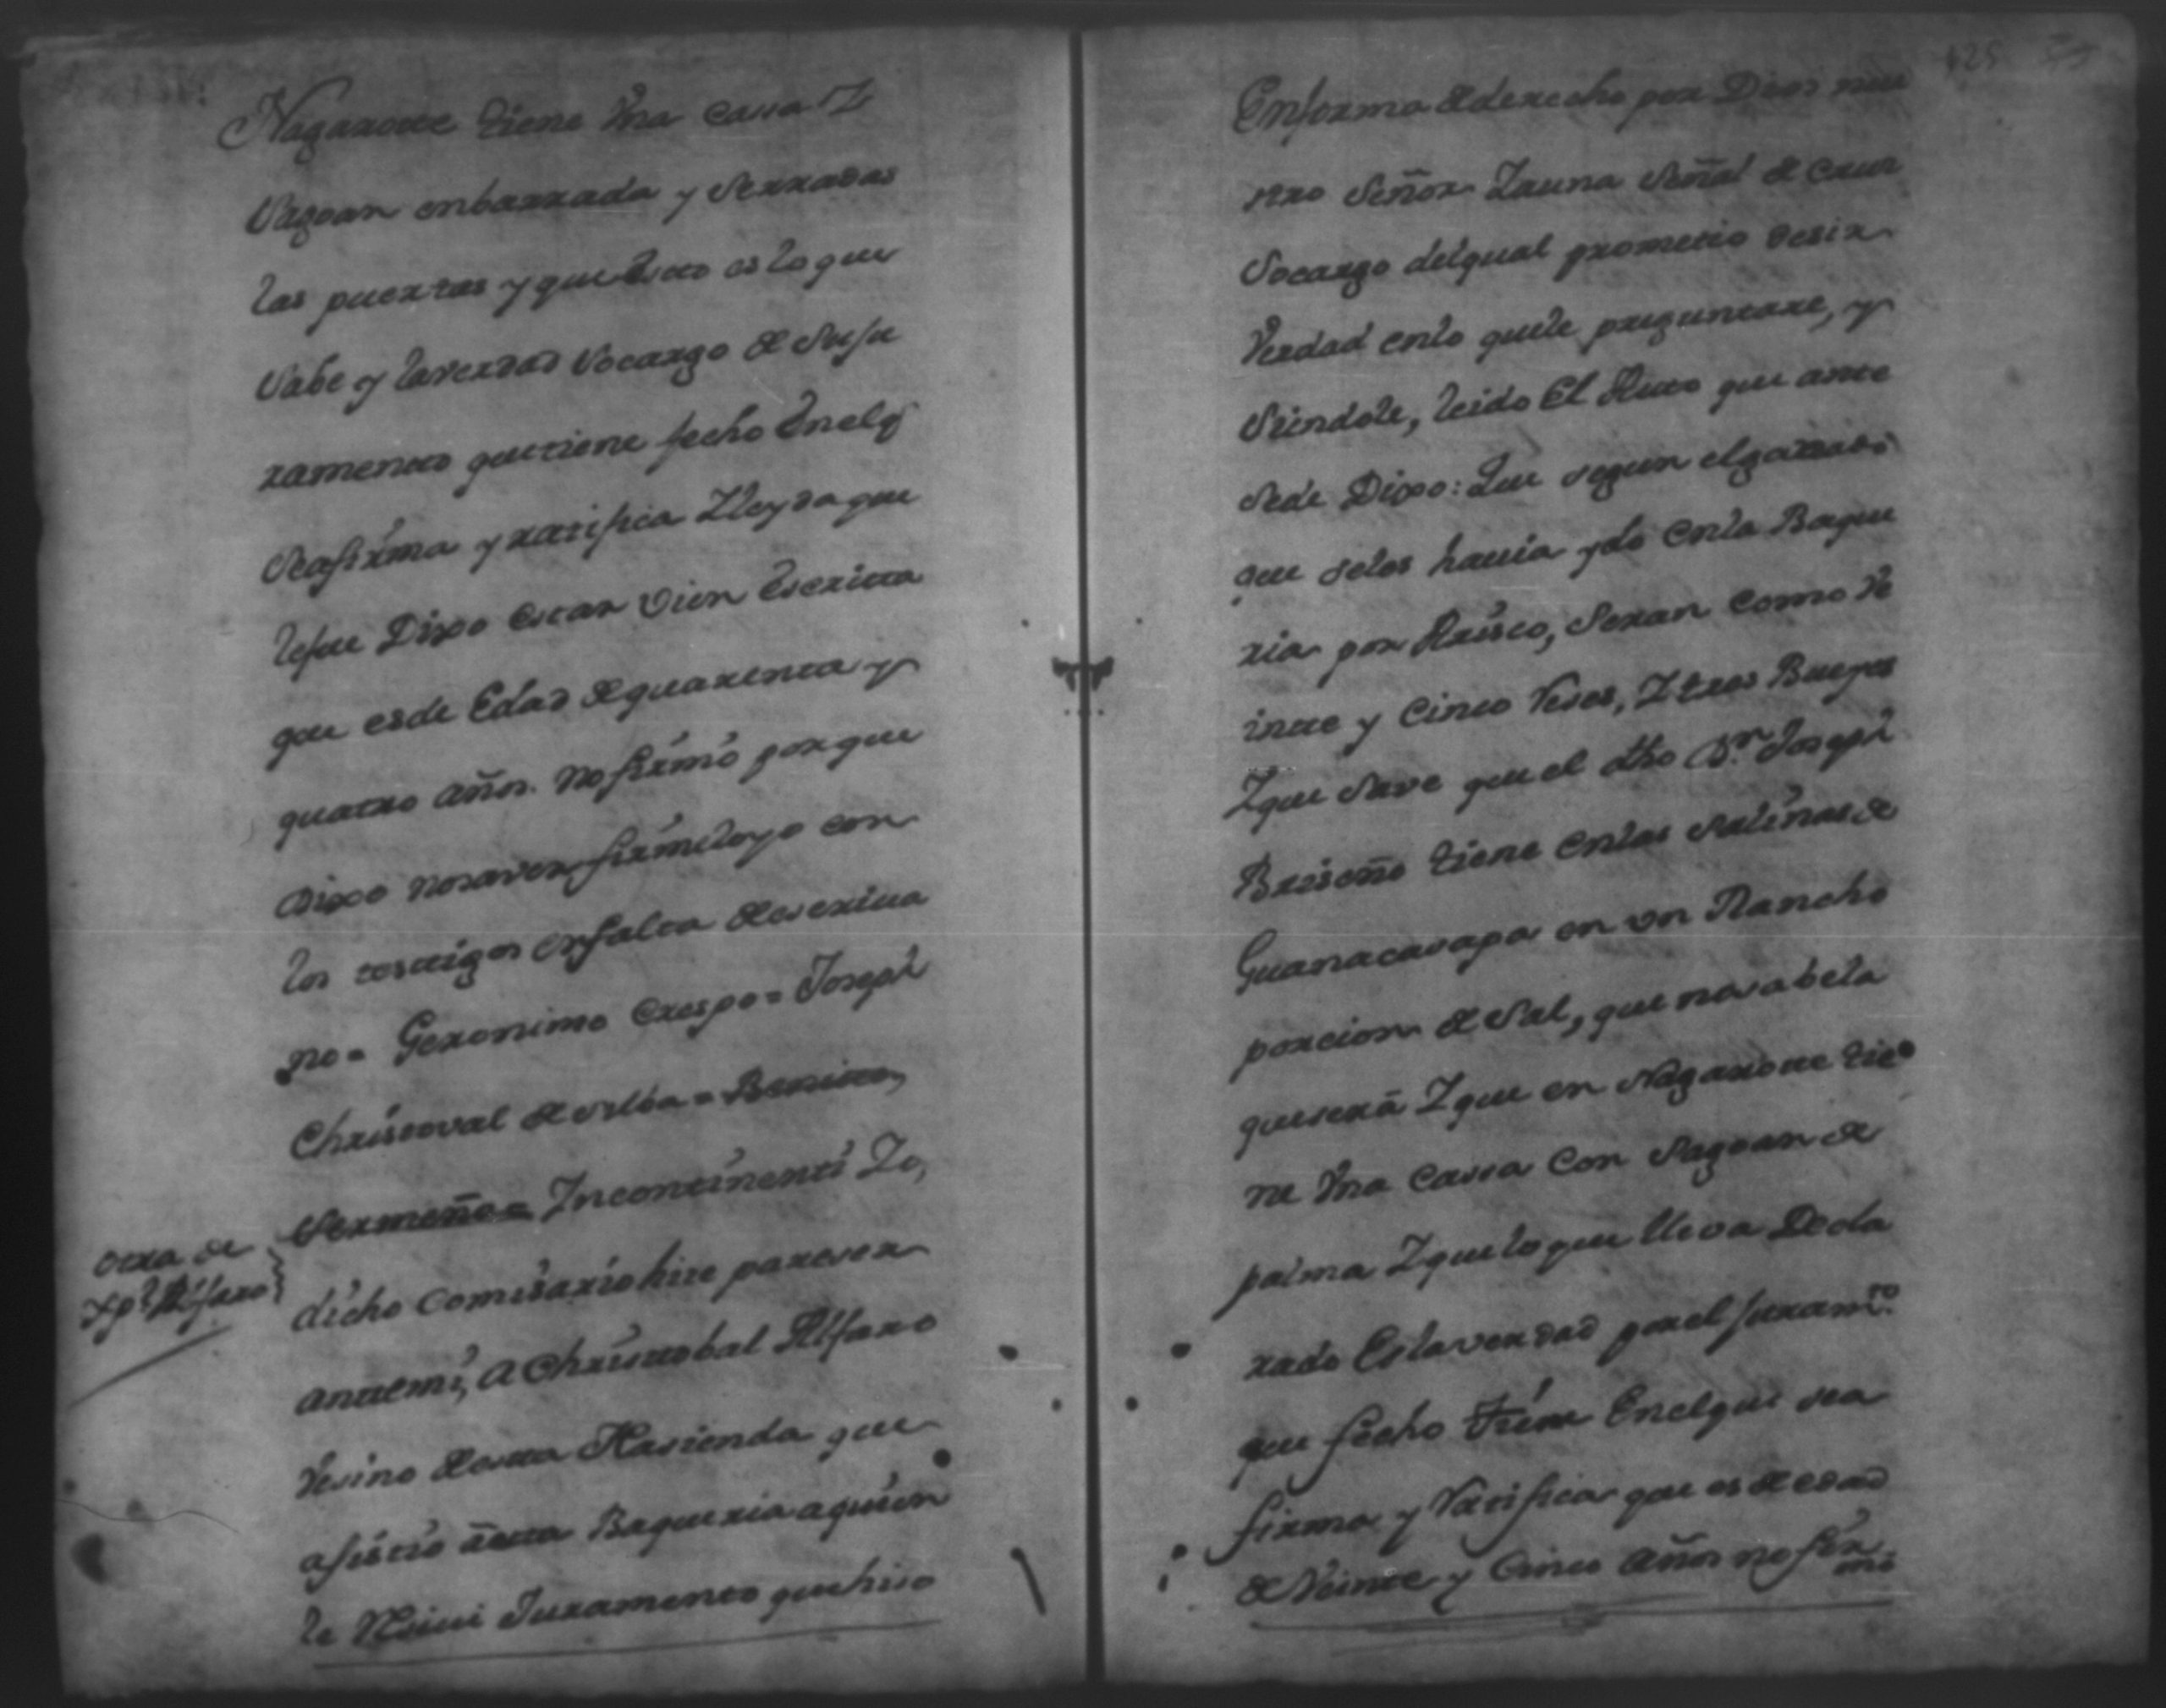 Nagarotte tiene Vna cassa Y
Sagoan embarrada y Serradas
las puertas y que Esto es lo que
Sabe y la verdad Socargo de Su Ju
ramento que tiene fecho En el q̃
Se afirma y ratifica Y leyda que
le fue Dixo estar vien Escritta
que es de Edad de quarenta y
quatro años. no firmó porque
dixo no saver firmelo yo con
los testigos en falta de escriva
no = Geronimo Crespo = Joseph
Christoval de silba = Benitto,
Sermeño = Incontinenti Yo,
dicho comisario hise pareser
ante mi, a Christobal Alfaro
Vesino de esta Hasienda que
asistió a esta Baqueria a quien
le Resiui Juramento que hiso
otra de
Xpl Alfaro
125
En forma de derecho por Dios nue
stro Señor Y a una Señal de Cruz
Socargo del qual prometio desir
Verdad en lo que le preguntare, y
Siendole, leido El Auto que ante
sede Dixo: Que segun el ganado
que se les hauia ydo en la Baque
ria por Arisco, Seran como Ve
inte y Cinco Reses, Y tres Bueyes
Y que Save que el dho Dn. Joseph
Briseño tiene en las Salinas de
Guanacasapa en un Rancho
porcion de Sal, que no sabe la
que sera Y que en Nagarotte tie
ne Vna Cassa Con Sagoan de
palma Y que lo que lleva Decla
rado Es la verdad por el Juramto.
que fecho Tiene En el que se a
firma y Ratifica que es de edad
de Veinte y Cinco años no fir
mó